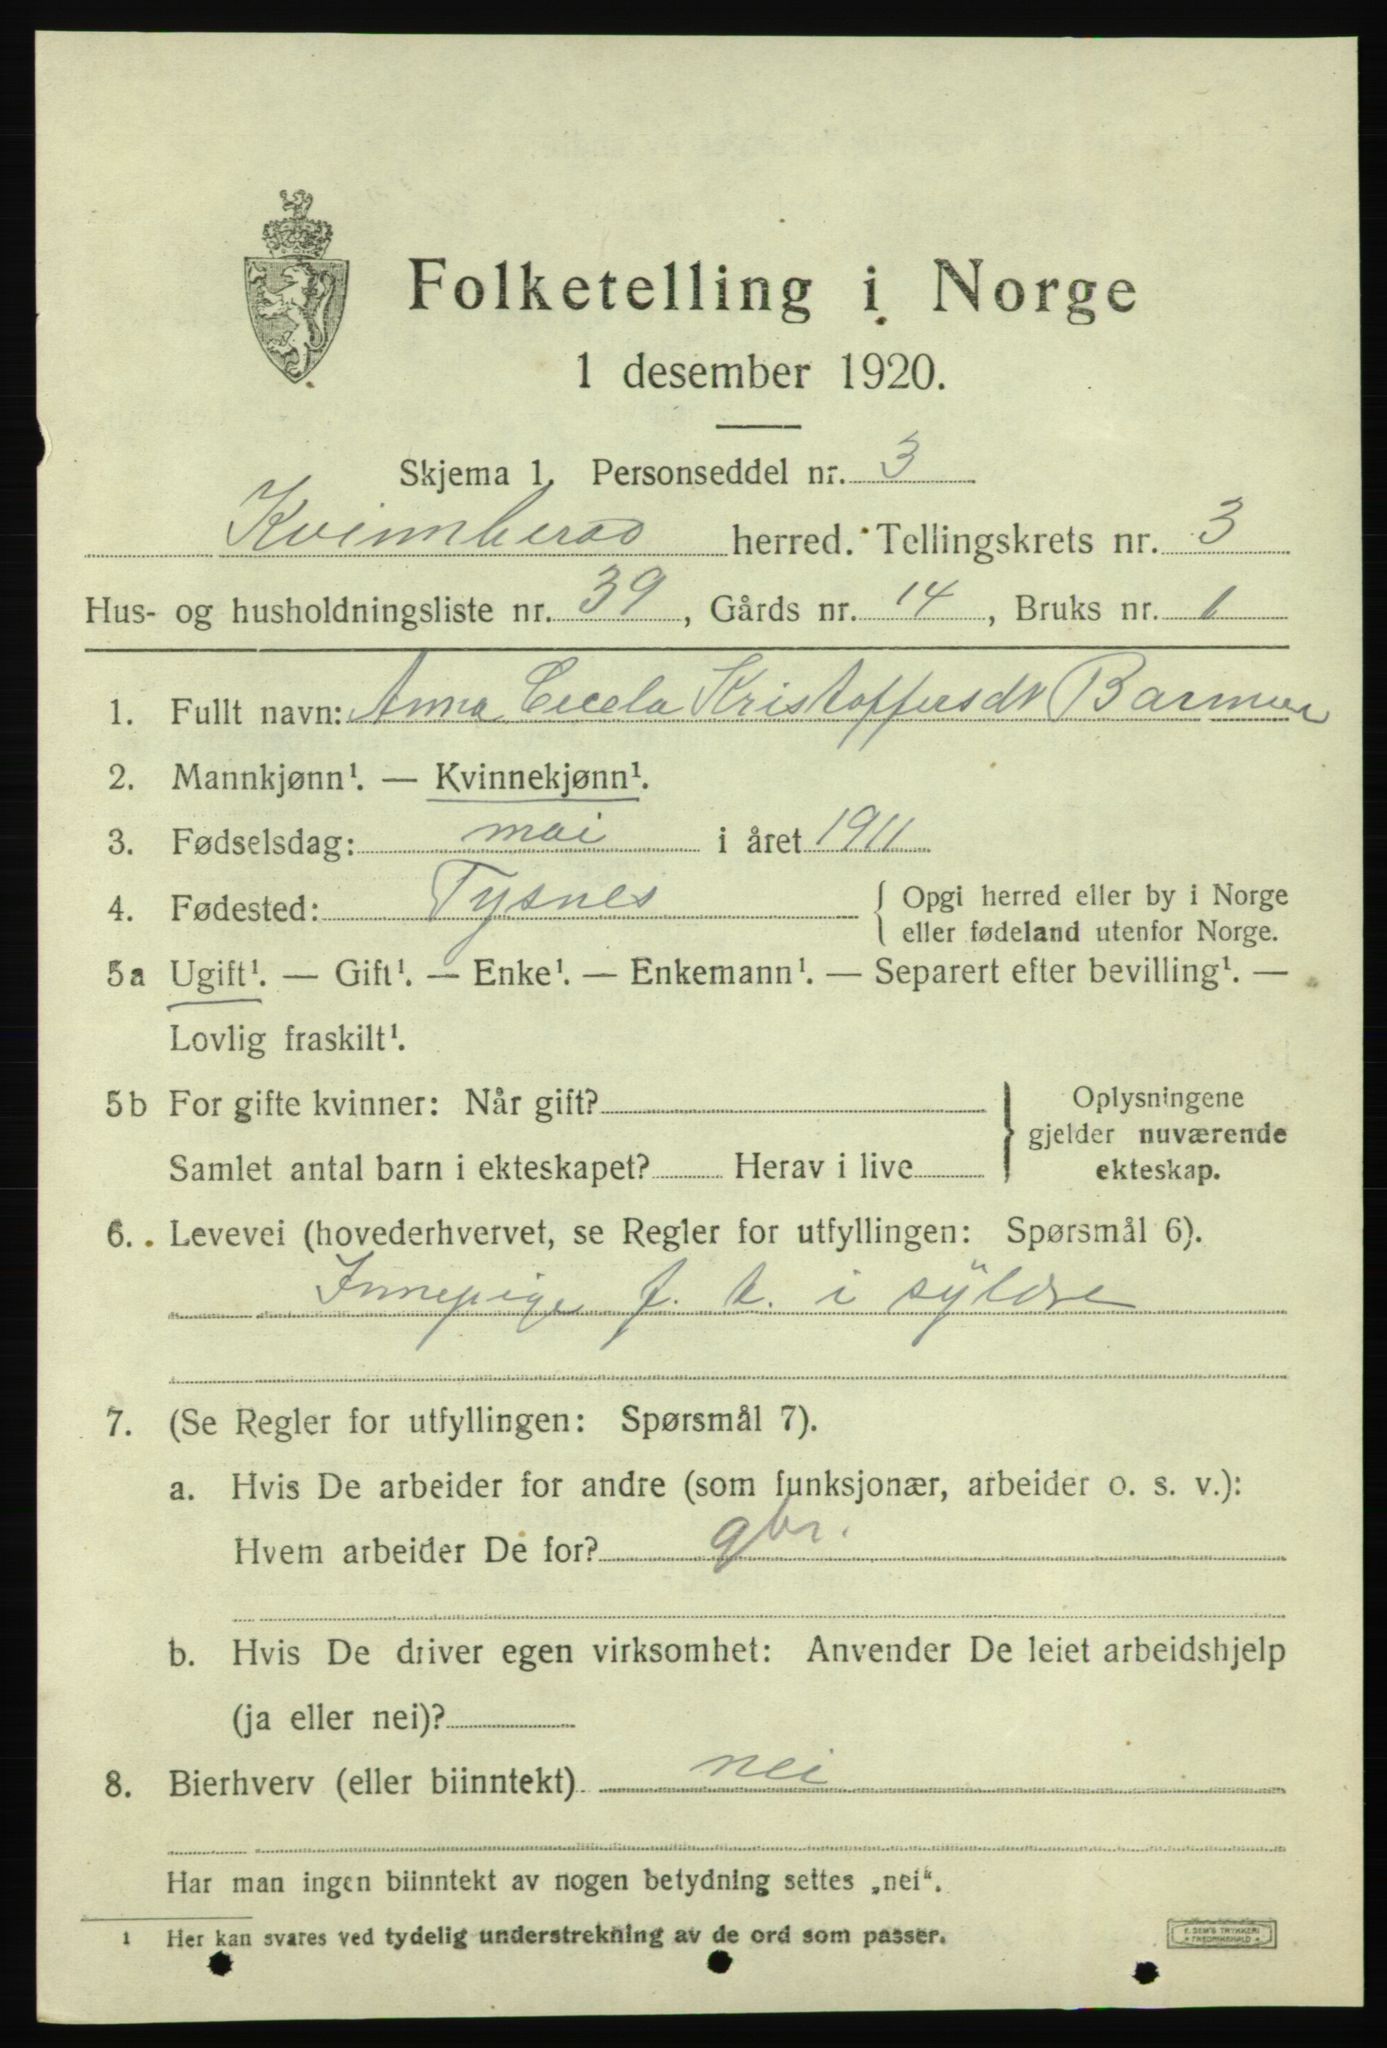 Folketelling i Norge
1 desember 1920.
Skjema 1. Personseddel nr. 3
Kvinnherad herred. Tellingskrets nr. 3
Hus- og husholdningsliste nr. 39, Gårds nr. 14, Bruks nr. 1
1. Fullt navn: Anna Cecela Kristoffersdt Barmen
2. Mannkjønn¹. — Kvinnekjønn¹.
3. Fødselsdag: mai i året 1911
4. Fødested: Tysnes { Opgi herred eller by i Norge
eller fødeland utenfor Norge.
5a Ugift¹. — Gift¹. — Enke¹. — Enkemann¹. — Separert efter bevilling¹. —
Lovlig fraskilt¹.
5b For gifte kvinner: Når gift? } Oplysningene
gjelder nuværende
Samlet antal barn i ekteskapet? Herav i live ekteskap.
6. Levevei (hovederhvervet, se Regler for utfyllingen: Spørsmål 6).
Innepige f. k. i
7. (Se Regler for utfyllingen: Spørsmål 7).
a. Hvis De arbeider for andre (som funksjonær, arbeider o. s. v.):
Hvem arbeider De for? gbr.
b. Hvis De driver egen virksomhet: Anvender De leiet arbeidshjelp
(ja eller nei)?
8. Bierhverv (eller biinntekt) nei
Har man ingen biinntekt av nogen betydning settes „nei“.
1 Her kan svares ved tydelig understrekning av de ord som passer.
F. SEM'S TRYKKERI
FREDRIKSHALD